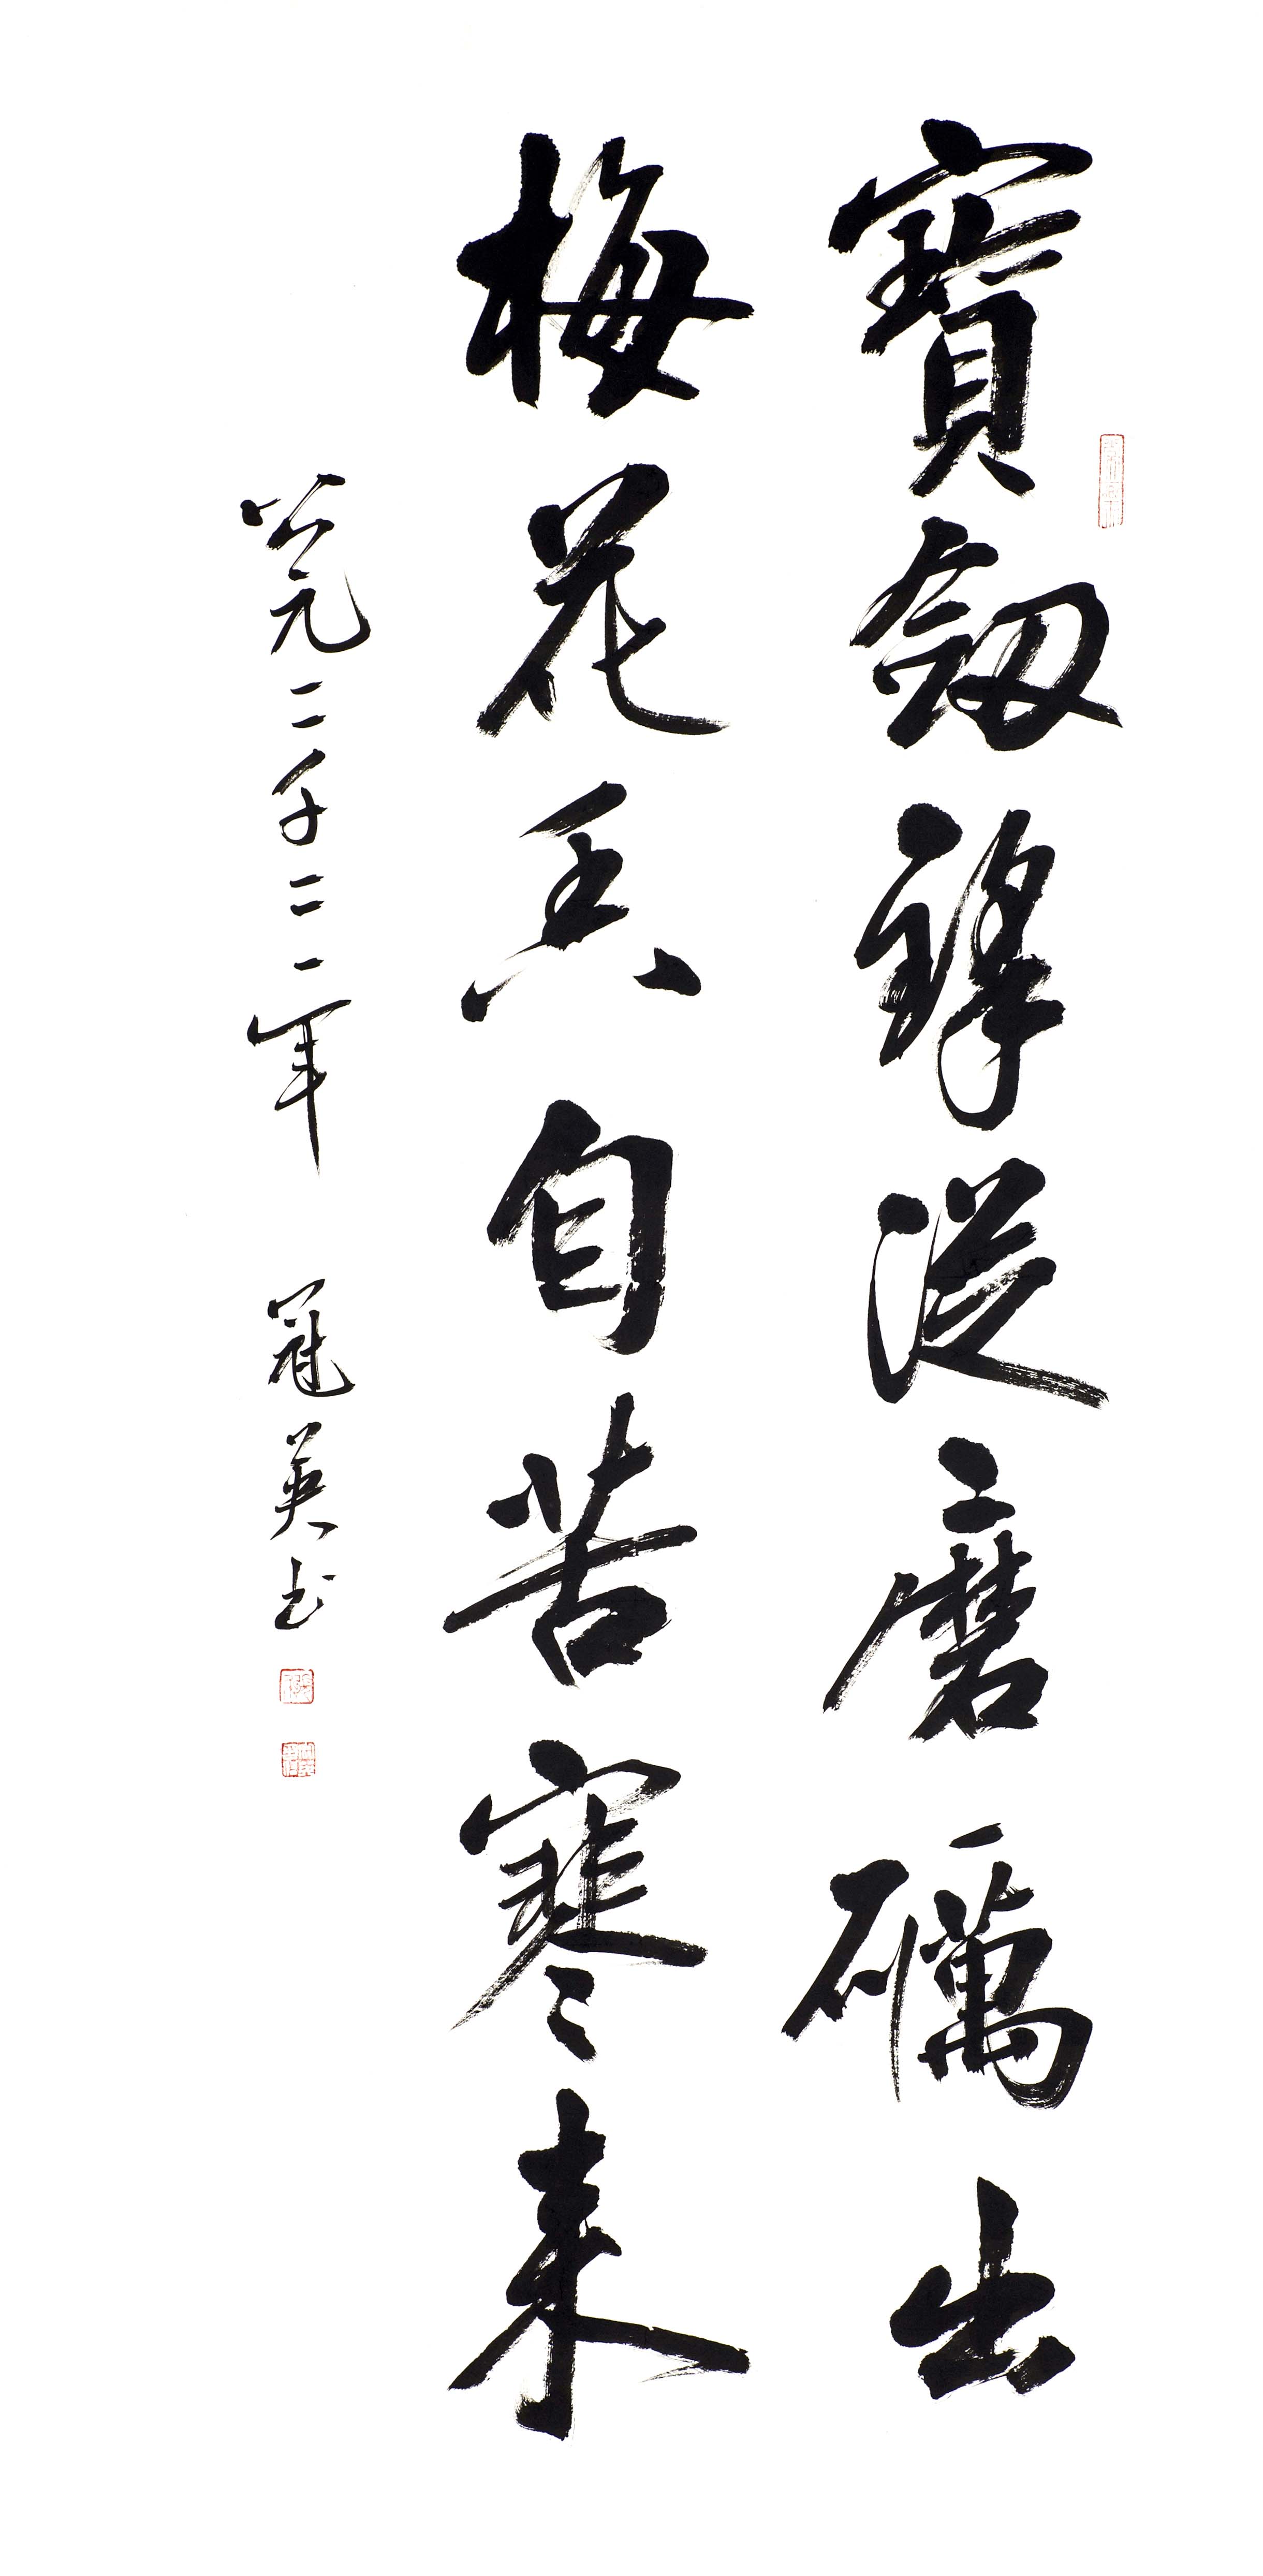 寶劒鋒從磨礪出
梅花香自苦寒来
公元二千二一年 冠英书